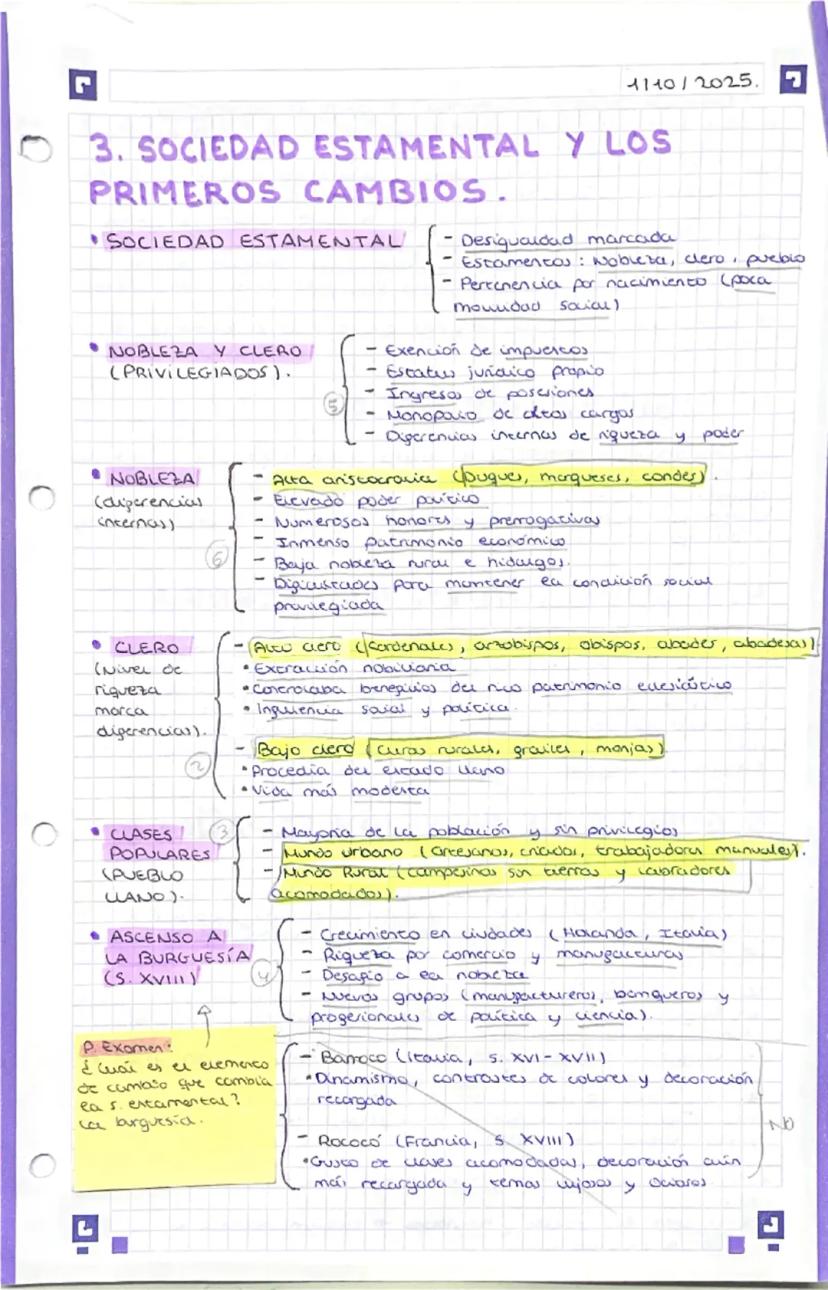 1/10/2025.
3. SOCIEDAD ESTAMENTAL Y LOS
PRIMEROS CAMBIOS.
• SOCIEDAD ESTAMENTAL
- Desigualdad marcada
- Estamentos: Nobleza, clero, pueblo
- Pertenencia por nacimiento (poca
movilidad social)
• NOBLEZA Y CLERO
(PRIVILEGIADOS).
5
- Exención de impuestos
- Estatus jurídico propio
- Ingresos de posesiones
- Monopolio de altos cargos
- Diferencias internas de riqueza y poder
• NOBLEZA
(diferencias
internas)
6
- Alta aristocracia (Duques, marqueses, condes).
- Elevado poder político
- Numerosos honores y prerrogativas
- Inmenso patrimonio económico
- Baja nobleza rural e hidalgos.
- Dificultades para mantener la condición social
privilegiada
• CLERO
(Nivel de
riqueza
marca
diferencias).
2
- Alto clero (Cardenales, arzobispos, obispos, abades, abadesas)
• Extracción nobiliaria
• Controlaba beneficios del rico patrimonio eclesiástico
• Influencia social y política.
- Bajo clero (curas rurales, frailes, monjas)
• Procedía del estado llano
• Vida más modesta
• CLASES
POPULARES
(PUEBLO
LLANO).
3
- Mayoría de la población y sin privilegios
- Mundo urbano (artesanos, criados, trabajadores manuales).
- Mundo Rural (campesinos sin tierras y labradores
acomodados).
• ASCENSO A
LA BURGUESÍA
(S. XVIII)
4
- Crecimiento en ciudades (Holanda, Italia)
- Riqueza por comercio y manufacturas
- Desafío a la nobleza
- Nuevos grupos (manufactureros, banqueros y
profesionales de política y ciencia).
P. Examen:
¿Cuál es el elemento
de cambio que cambia
la s. estamental?
La burguesía.
- Barroco (Italia, s. XVI-XVII)
• Dinamismo, contrastes de colores y decoración
recargada
- Rococó (Francia, s. XVIII)
• Gusto de clases acomodadas, decoración aún
más recargada y temas lujosos y ociosos
NO